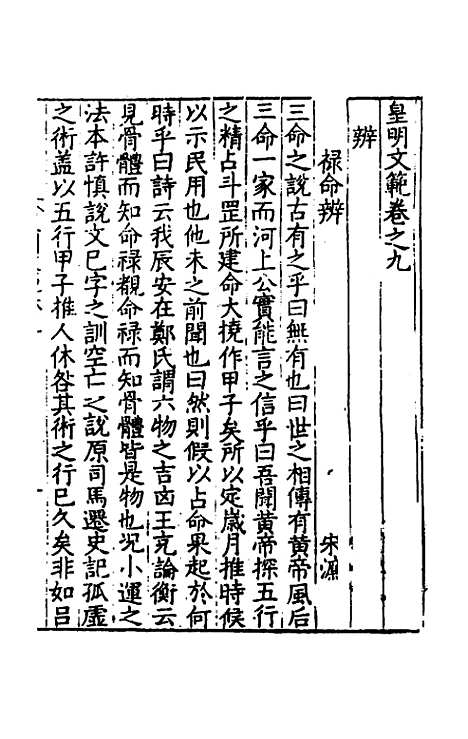 皇明文範卷之九
辨
祿命辨 宋濂
三命之說古有之乎曰無有也曰世之相傳有黃帝風后
三命一家而河上公實能言之信乎曰吾聞黃帝探五行
之精占斗罡所建命大撓作甲子矣所以定歲月推時候
以示民用也他未之前聞也曰然則假以占命果起於何
時乎曰詩云我辰安在鄭氏謂六物之吉凶王充論衡云
見骨體而知命祿覩命祿而知骨體皆是物也况小運之
法本許慎說文巳字之訓空亡之說原司馬遷史記孤虛
之術盖以五行甲子推人休咎其術之行已久矣非如呂